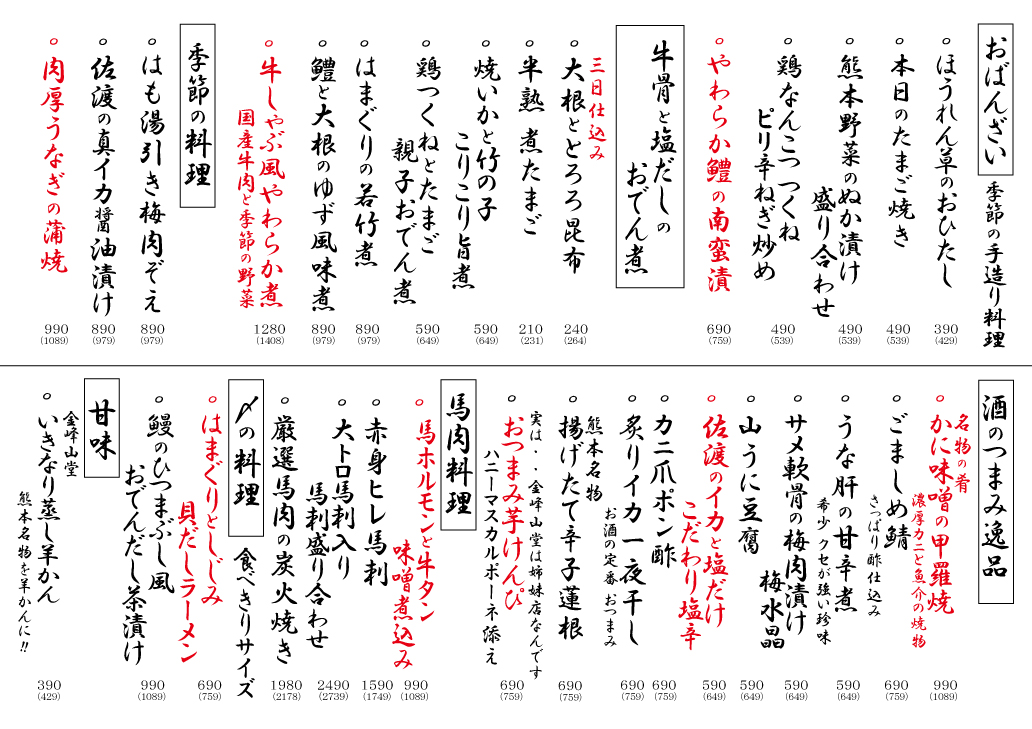 おばんざい 季節の手造り料理
ほうれん草のおひたし
390
(429)
本日のたまご焼き
490
(539)
熊本野菜のぬか漬け
盛り合わせ
490
(539)
鶏なんこつつくね
ピリ辛ねぎ炒め
490
(539)
やわらか鱧の南蛮漬
690
(759)
牛骨と塩だしの
おでん煮
三日仕込み
大根ととろろ昆布
240
(264)
半熟 煮たまご
210
(231)
焼いかと竹の子
こりこり旨煮
590
(649)
鶏つくねとたまご
親子おでん煮
590
(649)
はまぐりの若竹煮
890
(979)
鱧と大根のゆず風味煮
890
(979)
牛しゃぶ風やわらか煮
国産牛肉と季節の野菜
1280
(1408)
季節の料理
はも湯引き梅肉ぞえ
890
(979)
佐渡の真イカ醤油漬け
890
(979)
肉厚うなぎの蒲焼
990
(1089)
酒のつまみ逸品
名物の肴
かに味噌の甲羅焼
濃厚カニと魚介の焼物
990
(1089)
ごましめ鯖
さっぱり酢仕込み
690
(759)
うな肝の甘辛煮
希少 クセが強い珍味
590
(649)
サメ軟骨の梅肉漬け
梅水晶
590
(649)
山うに豆腐
590
(649)
佐渡のイカと塩だけ
こだわり塩辛
590
(649)
カニ爪ポン酢
690
(759)
炙りイカ一夜干し
お酒の定番 おつまみ
690
(759)
熊本名物
揚げたて辛子蓮根
690
(759)
実は・・金峰山堂は姉妹店なんです
おつまみ芋けんぴ
ハニーマスカルポーネ添え
690
(759)
馬肉料理
馬ホルモンと牛タン
味噌煮込み
990
(1089)
赤身ヒレ馬刺
1590
(1749)
大トロ馬刺入り
馬刺盛り合わせ
2490
(2739)
厳選馬肉の炭火焼き
1980
(2178)
〆の料理 食べきりサイズ
はまぐりとしじみ
貝だしラーメン
690
(759)
鰻のひつまぶし風
おでんだし茶漬け
990
(1089)
甘味
金峰山堂
いきなり蒸し羊かん
熊本名物を羊かんに!!
390
(429)